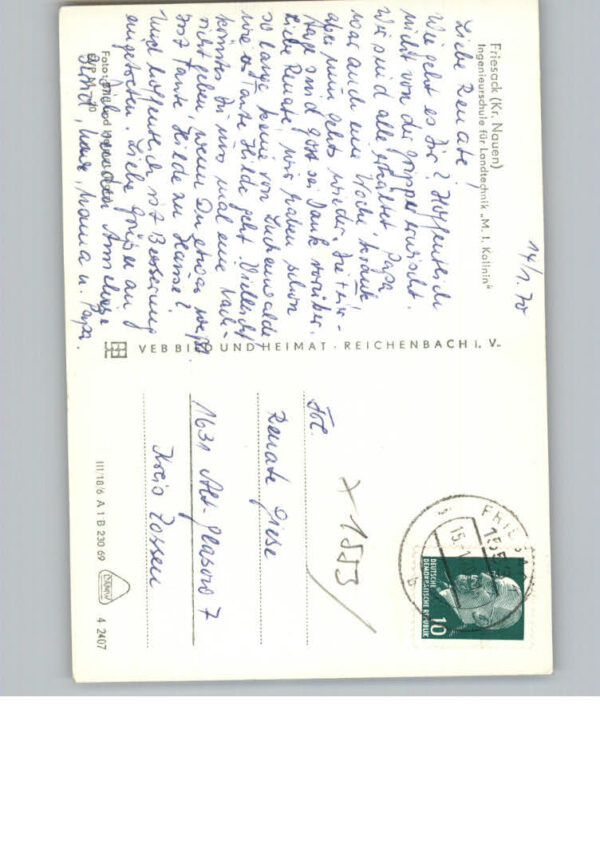 Friesack (Kr. Nauen)
Ingenieurschule für Landtechnik „M. I. Kalinin"
14/1. 70
Liebe Renate!
Wie geht es Dir? Hoffentlich
nicht von der Grippe erwischt.
Wir sind alle erkältet. Papa
war auch eine Woche krank
aber nun gehts wieder. Die
Tage sind Gott sei Dank vorüber.
Liebe Renate, wir haben schon
so lange keine von Luckenwalde
wie es Tante Hilde geht. Vielleicht
könntest Du uns mal eine Nach-
richt geben, wenn Du etwas weißt.
Ist Tante Hilde zu Hause?
Und hoffentlich ist Besserung
eingetreten. Liebe Grüße an
Mama u. Papa.
Foto:
VEB BILD UND HEIMAT · REICHENBACH I. V.
Frl.
Renate Giese
1631 Alt-Glasow 7
Kreis Zossen
x 1553/
FRIESACK
155
15.1
DEUTSCHE
DEMOKRATISCHE REPUBLIK
10
III/18/6 A 1 B 230 69
DAMW
4 2407